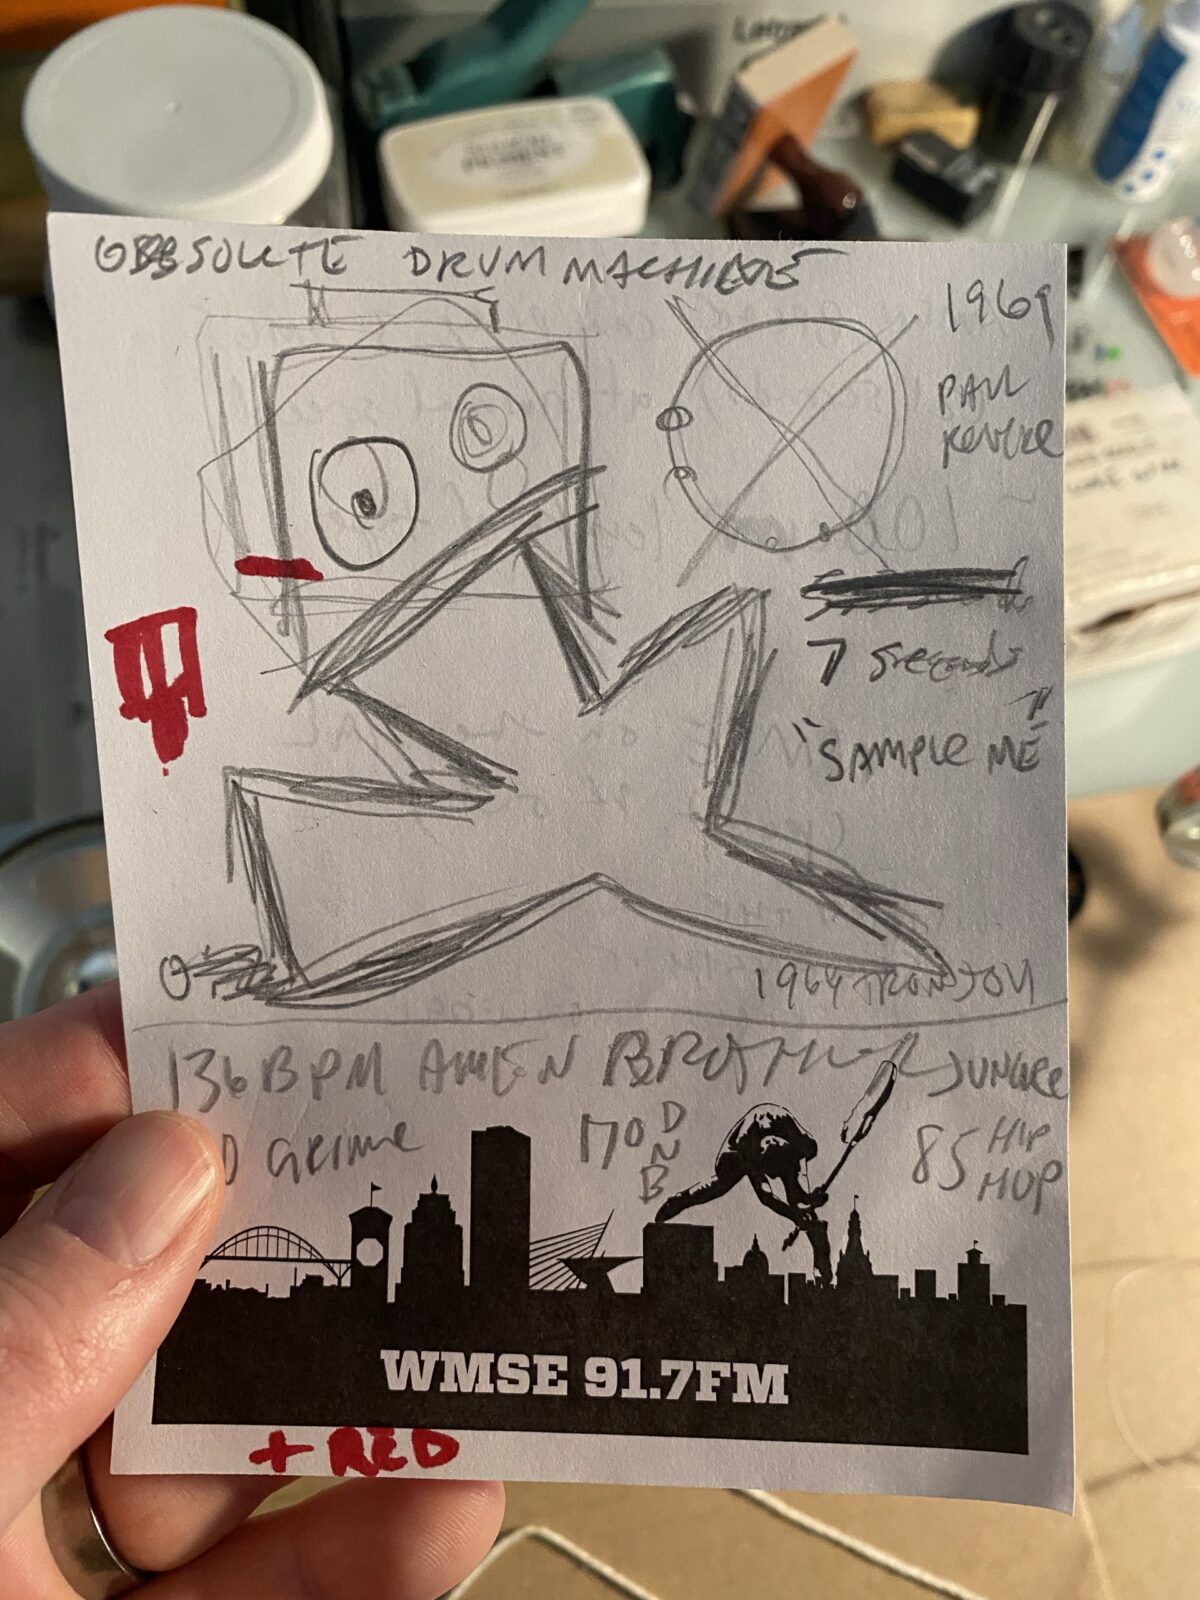 OBSSOLETE DRUM MACHINE
1969
PAUL
REVERE
7 seconds
"SAMPLE ME"
1964 IRON JOY
136 BPM AMEN BROTHER JUNGLE
GRIME
170 DNB
85 HIP HOP
WMSE 91.7FM
+ RED